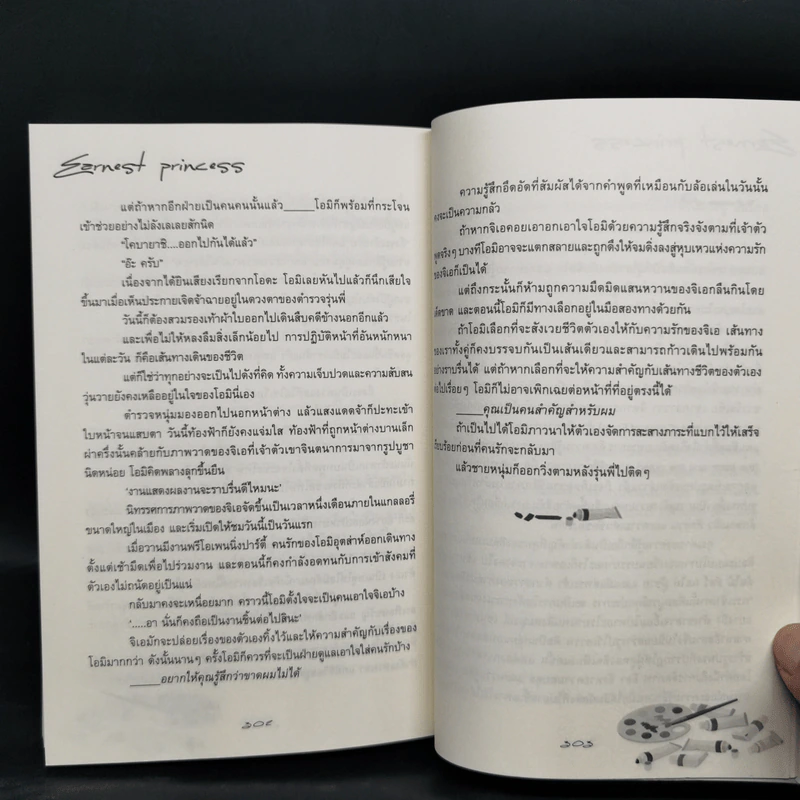 Earnest princess
แต่ถ้าหากอีกฝ่ายเป็นคนคนนั้นแล้ว_____โอมิก็พร้อมที่กระโจน
เข้าช่วยอย่างไม่ลังเลเลยสักนิด
“โคบายาชิ....ออกไปกันได้แล้ว”
“อ๊ะ ครับ”
เนื่องจากได้ยินเสียงเรียกจากโอดะ โอมิเลยหันไปแล้วก็นึกเสียใจ
ขึ้นมาเมื่อเห็นประกายเจิดจ้าฉายอยู่ในดวงตาของตำรวจรุ่นพี่
วันนี้ก็ต้องสวมรองเท้าผ้าใบออกไปเดินสืบคดีข้างนอกอีกแล้ว
และเพื่อไม่ให้หลงลืมสิ่งเล็กน้อยไป การปฏิบัติหน้าที่อันหนักหนา
ในแต่ละวัน ก็คือเส้นทางเดินของชีวิต
แต่ก็ใช่ว่าทุกอย่างจะเป็นไปดังที่คิด ทั้งความเจ็บปวดและความสับสน
วุ่นวายยังคงเหลืออยู่ในใจของโอมินี่เอง
ตำรวจหนุ่มมองออกไปนอกหน้าต่าง แล้วแสงแดดจ้าก็ปะทะเข้า
ใบหน้าจนแสบตา วันนี้ท้องฟ้าก็ยังคงแจ่มใส ท้องฟ้าที่ถูกหน้าต่างบานเล็ก
ผ่าครึ่งนั้นคล้ายกับภาพวาดของจิเอที่เจ้าตัวเขาจินตนาการมาจากรูปบูชา
นิดหน่อย โอมิคิดพลางลุกขึ้นยืน
‘งานแสดงผลงานจะราบรื่นดีไหมนะ’
นิทรรศการภาพวาดของจิเอจัดขึ้นเป็นเวลาหนึ่งเดือนภายในแกลลอรี่
ขนาดใหญ่ในเมือง และเริ่มเปิดให้ชมวันนี้เป็นวันแรก
เมื่อวานมีงานพรีโอเพนนิ่งปาร์ตี้ คนรักของโอมิอุตส่าห์ออกเดินทาง
ตั้งแต่เช้ามืดเพื่อไปร่วมงาน และตอนนี้ก็คงกำลังอดทนกับการเข้าสังคมที่
ตัวเองไม่ถนัดอยู่เป็นแน่
กลับมาคงจะเหนื่อยมาก คราวนี้โอมิตั้งใจจะเป็นคนเอาใจจิเอบ้าง
‘.....อา นั่นก็คงถือเป็นงานชิ้นต่อไปสินะ’
จิเอมักจะปล่อยเรื่องของตัวเองทิ้งไว้และให้ความสำคัญกับเรื่องของ
โอมิมากกว่า ดังนั้นนานๆ ครั้งโอมิก็ควรที่จะเป็นฝ่ายดูแลเอาใจใส่คนรักบ้าง
_____อยากให้คุณรู้สึกว่าขาดผมไม่ได้
ความรู้สึกอึดอัดที่สัมผัสได้จากคำพูดที่เหมือนกับล้อเล่นในวันนั้น
คงจะเป็นความกลัว
ถ้าหากจิเอคอยเอาอกเอาใจโอมิด้วยความรู้สึกจริงจังตามที่เจ้าตัว
พูดจริงๆ บางทีโอมิอาจจะแตกสลายและถูกดึงให้จมดิ่งลงสู่หุบเหวแห่งความรัก
ของจิเอก็เป็นได้
แต่ถึงกระนั้นก็ห้ามถูกความมืดมิดแสนหวานของจิเอกลืนกินโดย
เด็ดขาด และตอนนี้โอมิก็มีทางเลือกอยู่ในมือสองทางด้วยกัน
ถ้าโอมิเลือกที่จะสังเวยชีวิตตัวเองให้กับความรักของจิเอ เส้นทาง
ของเราทั้งคู่ก็คงบรรจบกันเป็นเส้นเดียวและสามารถก้าวเดินไปพร้อมกัน
อย่างราบรื่นได้ แต่ถ้าหากเลือกที่จะให้ความสำคัญกับเส้นทางชีวิตของตัวเอง
ต่อไปเรื่อยๆ โอมิก็ไม่อาจเพิกเฉยต่อหน้าที่ที่อยู่ตรงนี้ได้
_____คุณเป็นคนสำคัญสำหรับผม
ถ้าเป็นไปได้โอมิภาวนาให้ตัวเองจัดการสะสางภาระที่แบกไว้ให้เสร็จ
เรียบร้อยก่อนที่คนรักจะกลับมา
แล้วชายหนุ่มก็ออกวิ่งตามหลังรุ่นพี่ไปติดๆ
303